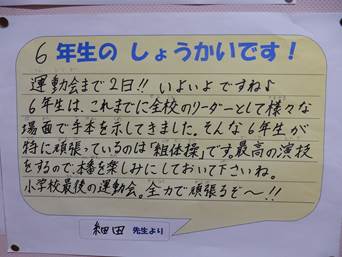 6年生のしょうかいです！
運動会まで2日!! いよいよですね♪
6年生は、これまでに全校のリーダーとして様々な
場面で手本を示してきました。そんな6年生が
特に頑張っているのは「組体操」です。最高の演技
をするので、本番を楽しみにしておいて下さいね。
小学校最後の運動会。全力で頑張るぞ〜!!
細田 先生より